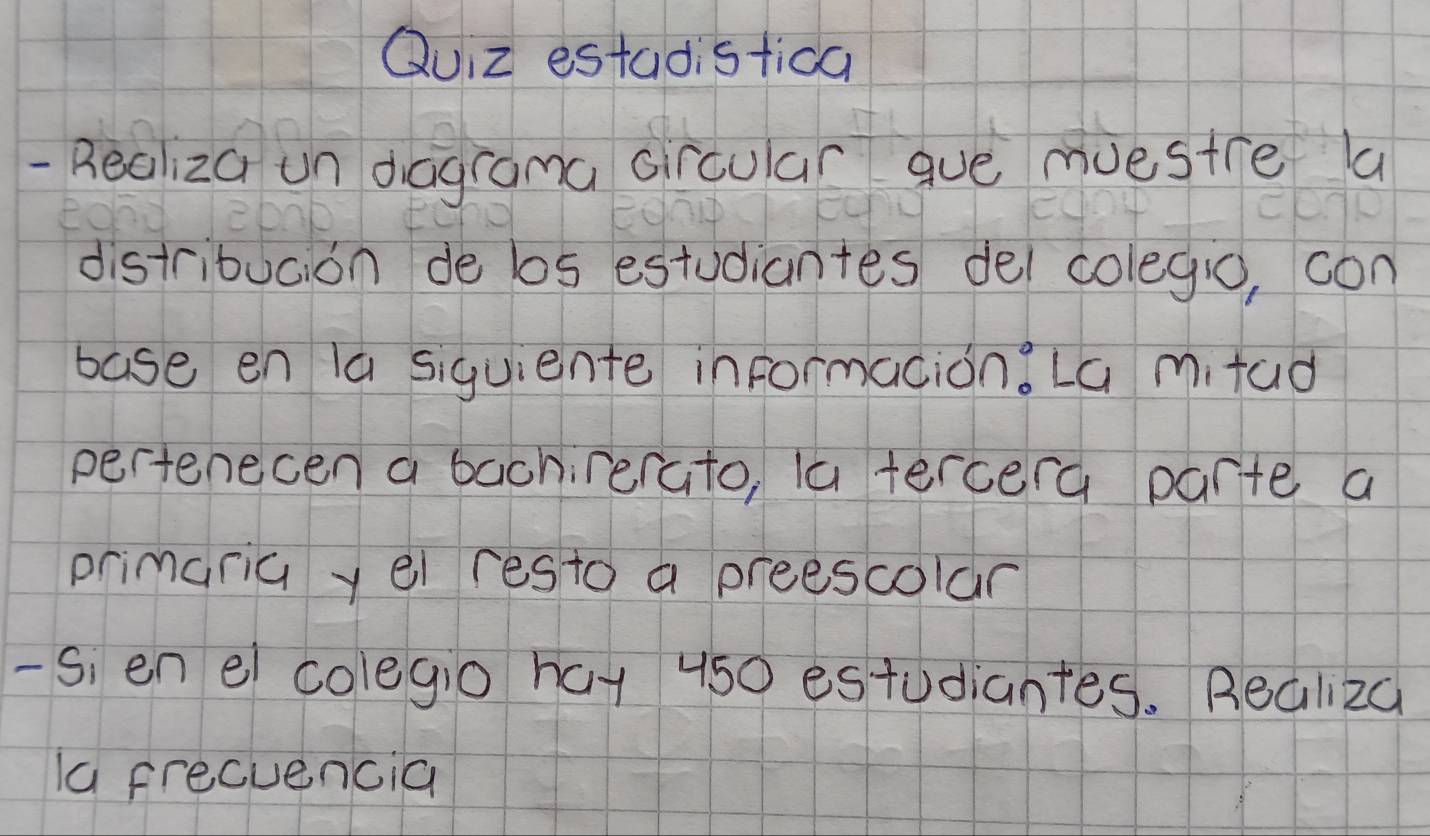 Quiz estadistica
- Realiza un diagrama circular que muestre la
distribución de los estudiantes del colegio, con
base en la siguiente información: La mitad
pertenecen a bachirerato, la tercera parte a
primaria y el resto a preescolar
- Si en el colegio hay 450 estudiantes. Realiza
la frecuencia